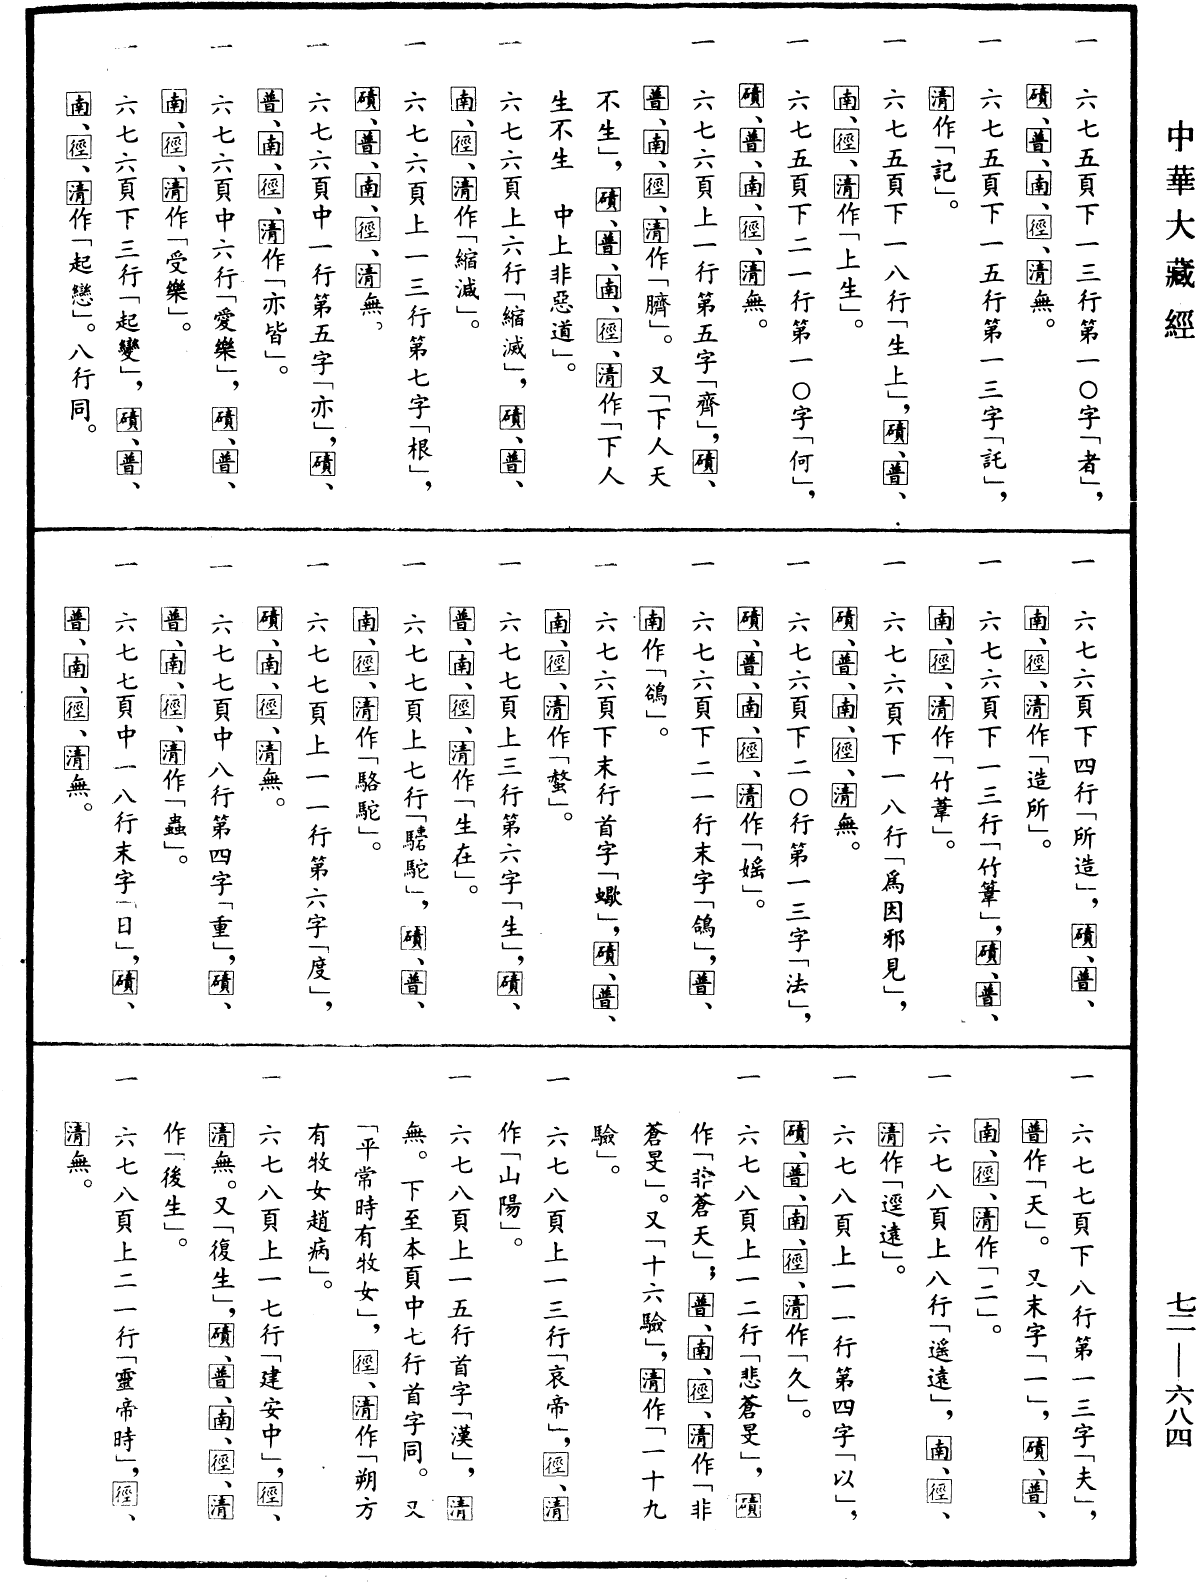 中華大藏經
一 六七五頁下一三行第一〇字「者」，
磧、普、南、徑、清無。
一 六七五頁下一五行第一三字「託」，
清作「記」。
一 六七五頁下一八行「生上」，磧、普、
南、徑、清作「上生」。
一 六七五頁下二一行第一〇字「何」，
磧、普、南、徑、清無。
一 六七六頁上一行第五字「齊」，磧、
普、南、徑、清作「臍」。又「下人天
不生」，磧、普、南、徑、清作「下人
生不生 中上非惡道」。
一 六七六頁上六行「縮滅」，磧、普、
南、徑、清作「縮減」。
一 六七六頁上一三行第七字「根」，
磧、普、南、徑、清無。
一 六七六頁中一行第五字「亦」，磧、
普、南、徑、清作「亦皆」。
一 六七六頁中六行「愛樂」，磧、普、
南、徑、清作「受樂」。
一 六七六頁下三行「起變」，磧、普、
南、徑、清作「起戀」。八行同。
一 六七六頁下四行「所造」，磧、普、
南、徑、清作「造所」。
一 六七六頁下一三行「竹篳」，磧、普、
南、徑、清作「竹葦」。
一 六七六頁下一八行「爲因邪見」，
磧、普、南、徑、清無。
一 六七六頁下二〇行第一三字「法」，
磧、普、南、徑、清作「婬」。
一 六七六頁下二一行末字「鴿」，普、
南作「鵒」。
一 六七六頁下末行首字「蠍」，磧、普、
南、徑、清作「螫」。
一 六七七頁上三行第六字「生」，磧、
普、南、徑、清作「生在」。
一 六七七頁上七行「駝」，磧、普、
南、徑、清作「駱駝」。
一 六七七頁上一一行第六字「度」，
磧、南、徑、清無。
一 六七七頁中八行第四字「重」，磧、
普、南、徑、清作「蟲」。
一 六七七頁中一八行末字「日」，磧、
普、南、徑、清無。
一 六七七頁下八行第一三字「夫」，
普作「天」。又末字「一」，磧、普、
南、徑、清作「二」。
一 六七八頁上八行「遥遠」，南、徑、
清作「逕遠」。
一 六七八頁上一一行第四字「以」，
磧、普、南、徑、清作「久」。
一 六七八頁上一二行「悲蒼旻」，磧
作「悲蒼天」；普、南、徑、清作「非
蒼旻」。又「十六驗」，清作「一十九
驗」。
一 六七八頁上一三行「哀帝」，徑、清
作「山陽」。
一 六七八頁上一五行首字「漢」，清
無。下至本頁中七行首字同。又
「平常時有牧女」，徑、清作「朔方
有牧女趙病」。
一 六七八頁上一七行「建安中」，徑、
清無。又「復生」，磧、普、南、徑、清
作「後生」。
一 六七八頁上二一行「靈帝時」，徑、
清無。
七二——六八四